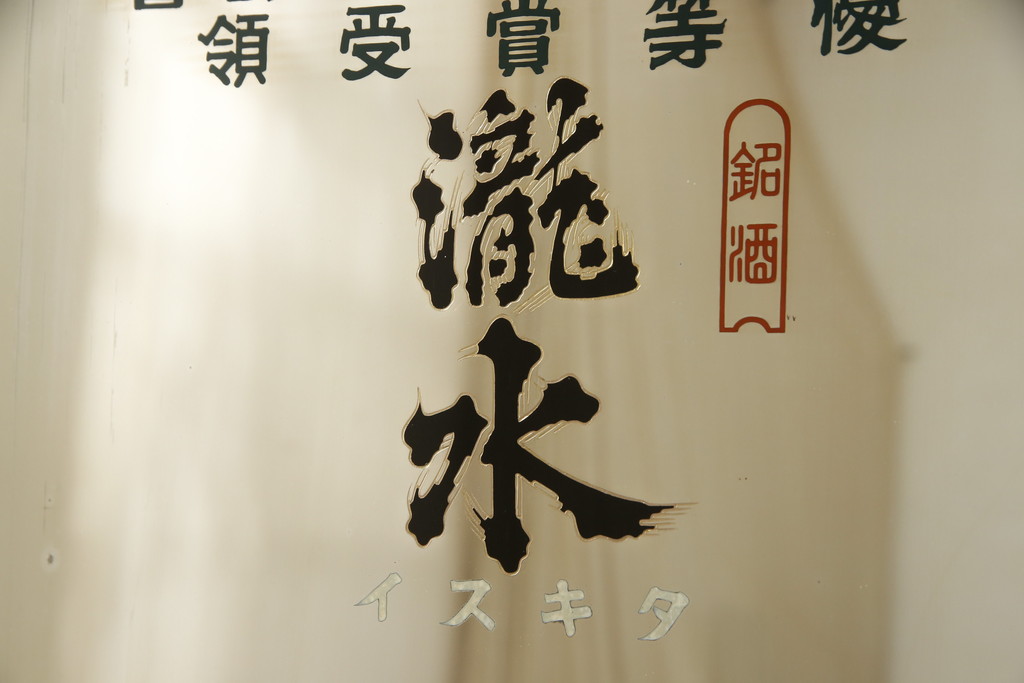 優等賞受領
銘酒
瀧水
タキスイ